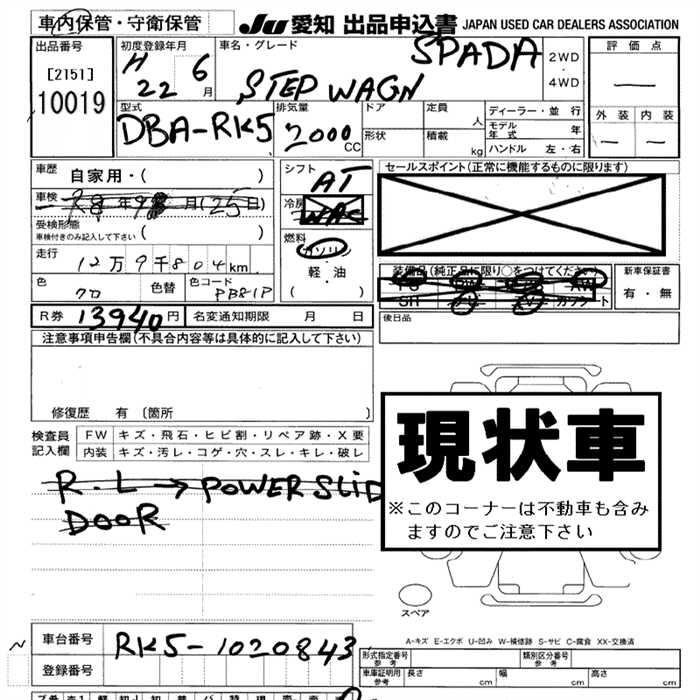 車内保管・守衛保管
JU 愛知 出品申込書 JAPAN USED CAR DEALERS ASSOCIATION
出品番号
[2151]
10019
初度登録年月
H 22 6月
車名・グレード
SPADA
STEP WAGN
2WD
・
4WD
評価点
—
外装 内装
— —
型式
DBA-RK5
排気量
2000 CC
ドア
形状
定員 人
積載 kg
ディーラー・並行
モデル年式 年
ハンドル 左・右
車歴 自家用・( )
車検 R8年9月(25日)
受検形態
車検付きのみ記入して下さい ( )
走行 12万9千804km
色 クロ 色替 色コード PB81P
シフト AT
冷房 WAC
燃料 ガソリン
軽・油
( )
セールスポイント(正常に機能するものに限ります)
装備品(純正品に限り○をつけてください)
PS PW AW
SH カワシート
新車保証書
有・無
R券 13940円 名変通知期限 月 日
後日品
注意事項申告欄(不具合内容等は具体的に記入して下さい)
修復歴 有 [箇所 ]
検査員記入欄
FW キズ・飛石・ヒビ割・リペア跡・X要
内装 キズ・汚レ・コゲ・穴・スレ・キレ・破レ
R.L→POWER SLID
DOOR
現状車
※このコーナーは不動車も含み
ますのでご注意下さい
スペア
A-キズ E-エクボ U-凹み W-補修跡 S-サビ C-腐食 XX-交換済
車台番号 RK5-1020843
登録番号
形式指定番号 参考
類別区分番号 参考
車庫証明用 参考 長さ cm 幅 cm 高さ cm